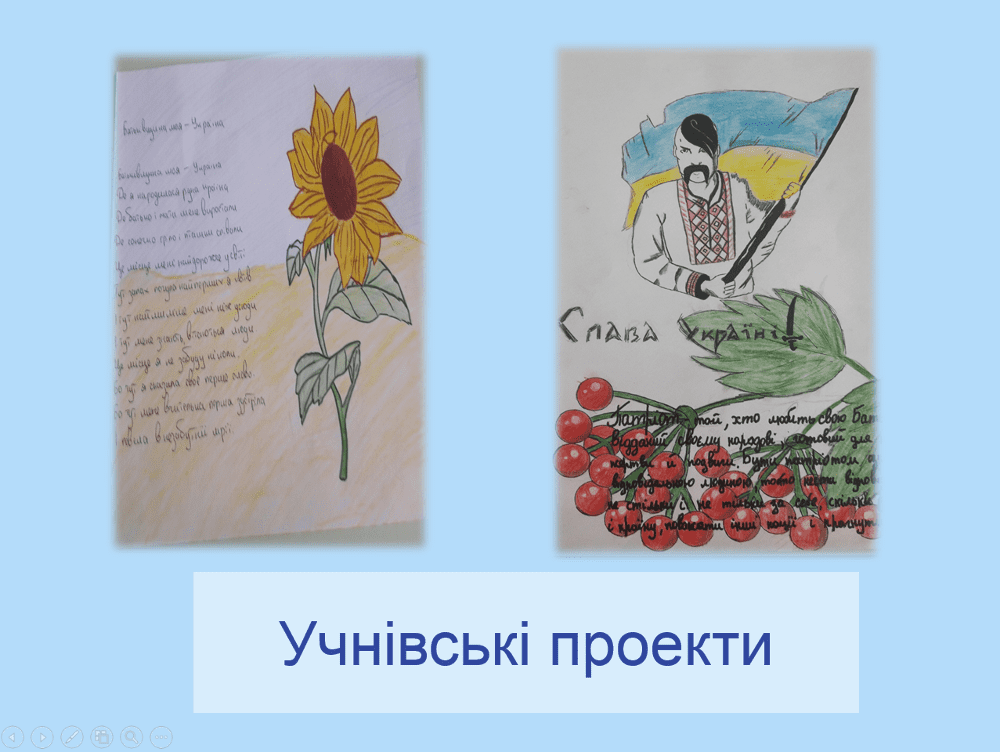 Батьківщина моя – Україна
Батьківщина моя – Україна
Де я народилася рідна країна
Де батько і мати мене виростали
Де сонечко гріло і пташки співали
Це місце мені найдорожче у світі
Тут запах
І тут наймиліше мені ніж усюди
І тут мене знають, вітаються люди
Це місце я не забуду ніколи.
Бо тут я сказала своє перше слово
Бо тут мене вчителька перша зустріла
І повела в незабутній мрії
Слава Україні!
Патріот – той, хто любить свою Бат
відданий своєму народові, готовий для
жертви й подвиги. Бути патріотом
відповідальною людиною, тобто нести відпов
не стільки і не тільки за себе, скільки
і країну, поважати інші нації і прагнут
Учнівські проекти